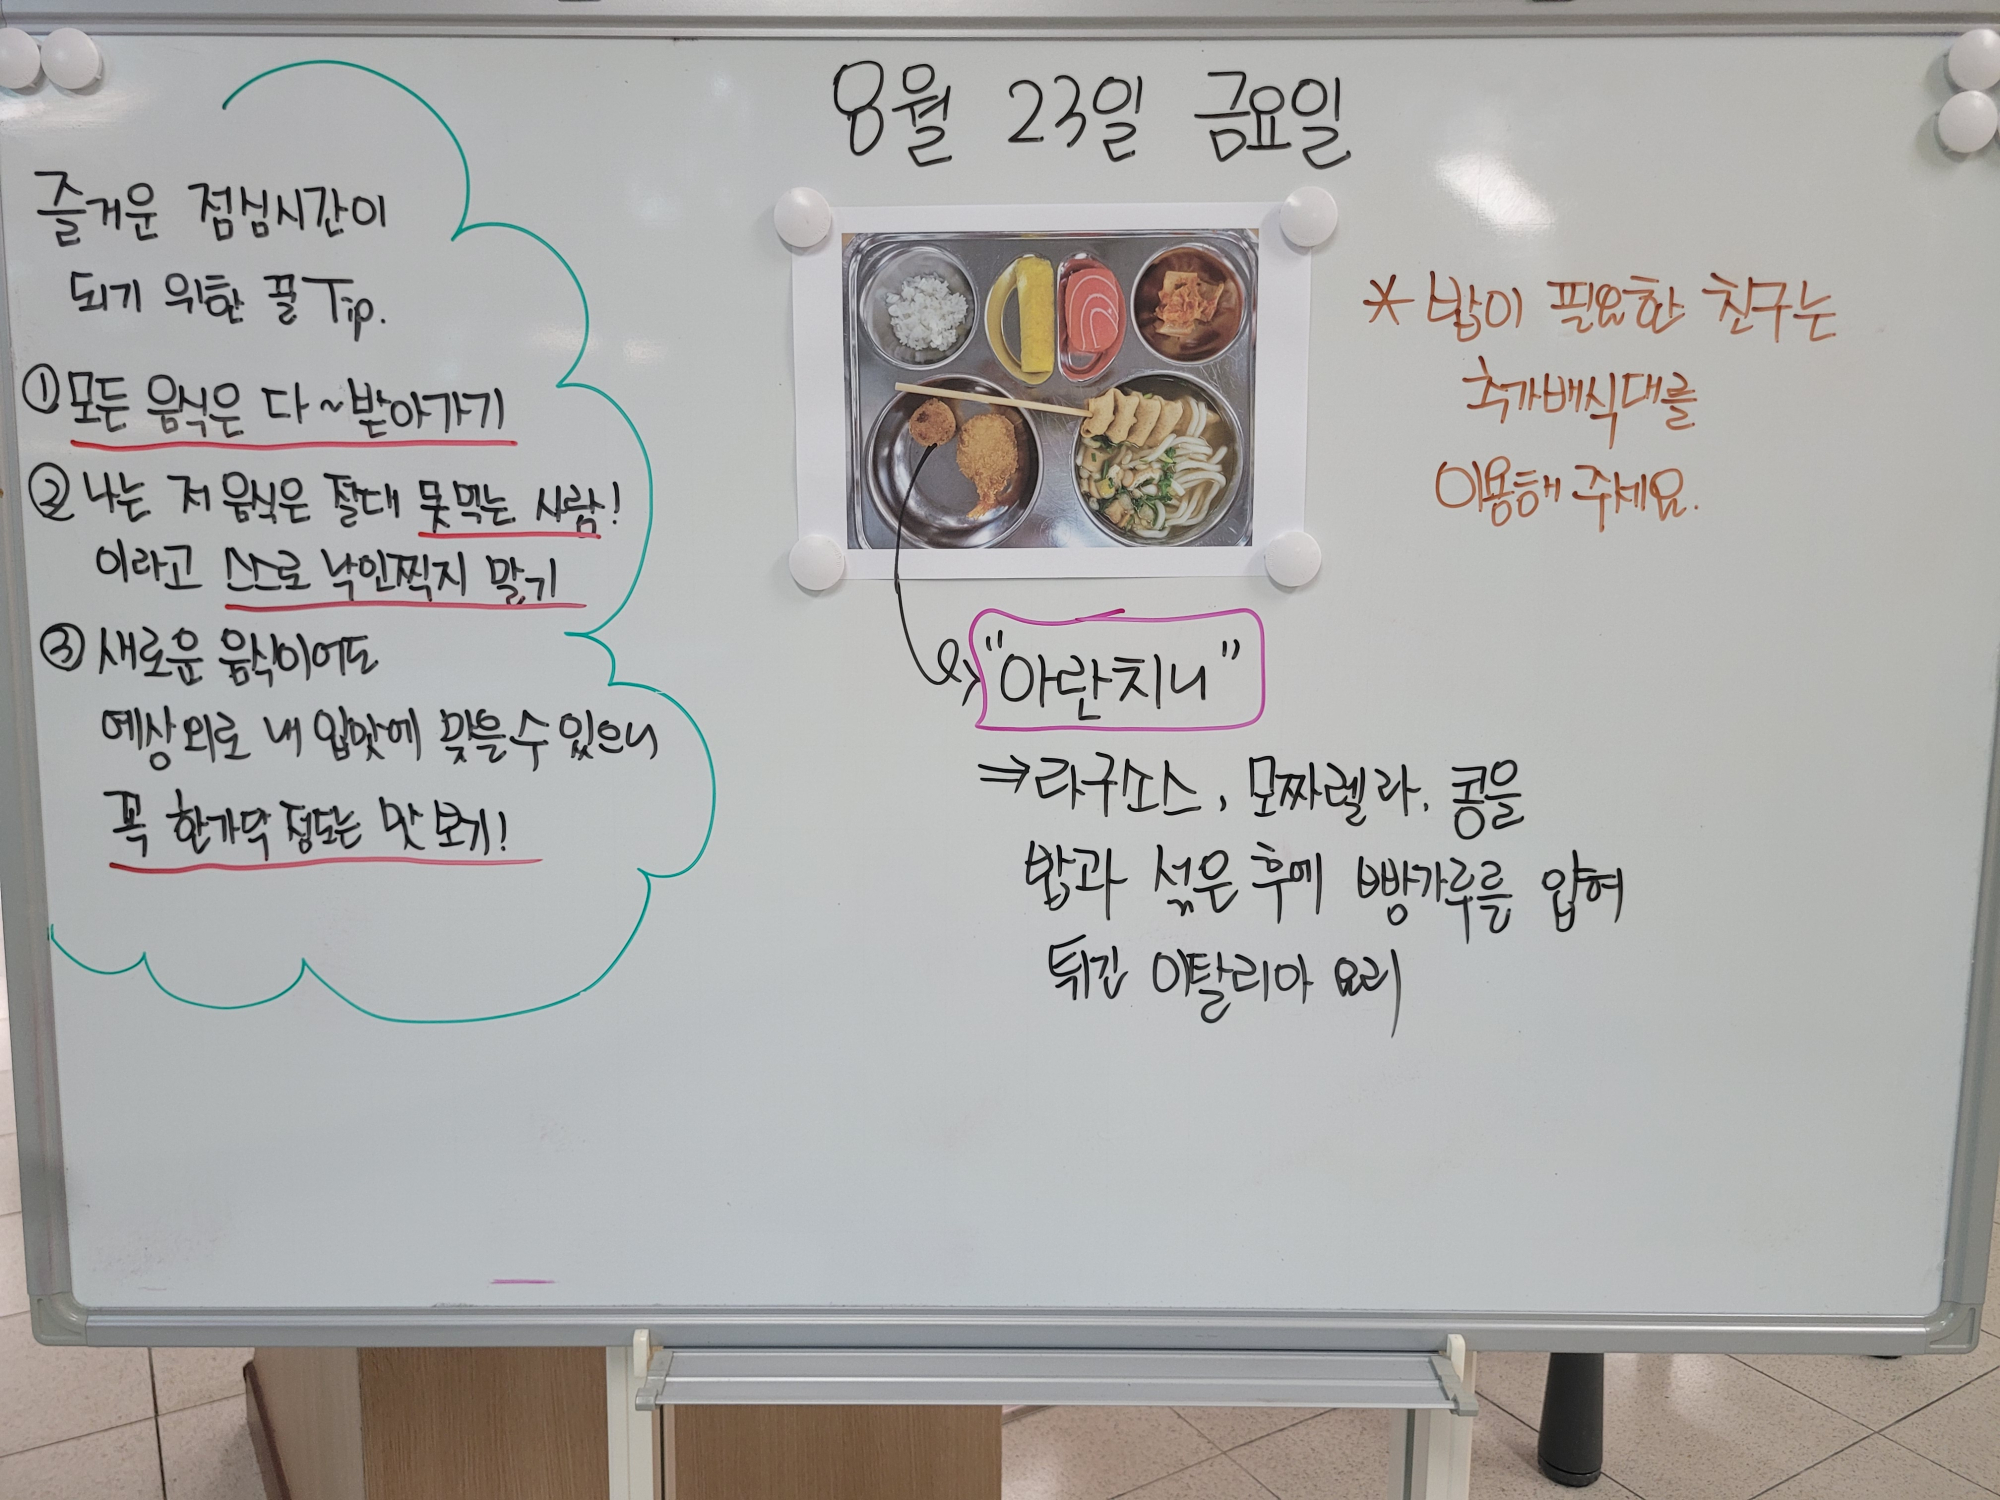 8월 23일 금요일
즐거운 점심시간이
되기 위한 꿀 Tip.
① 모든 음식은 다~받아가기
② 나는 저 음식은 절대 못먹는 사람!
이라고 스스로 낙인찍지 말기
③ 새로운 음식이어도
예상외로 내 입맛에 맞을 수 있으니
꼭 한가닥 정도는 맛보기!
* 밥이 필요한 친구는
추가배식대를
이용해 주세요.
"아란치니"
⇒ 라구소스, 모짜렐라, 콩을
밥과 섞은 후에 빵가루를 입혀
튀긴 이탈리아 요리